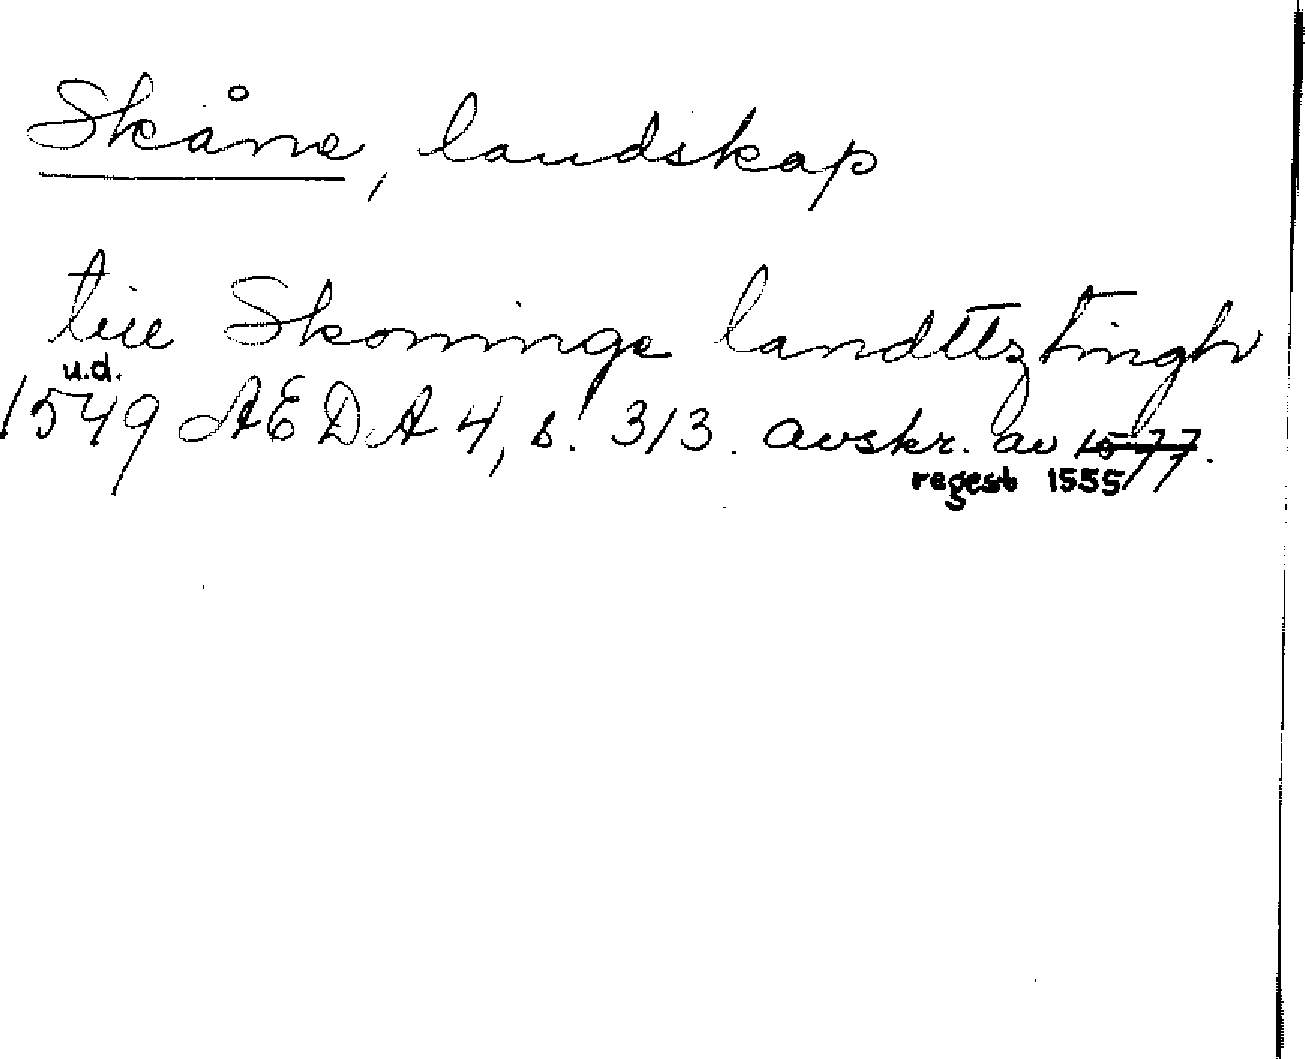 Skåne, landskap
till Skoninge landttztingh
u.d.
1549 AEDA 4, s. 313. avskr. av 1577.
regest 1555